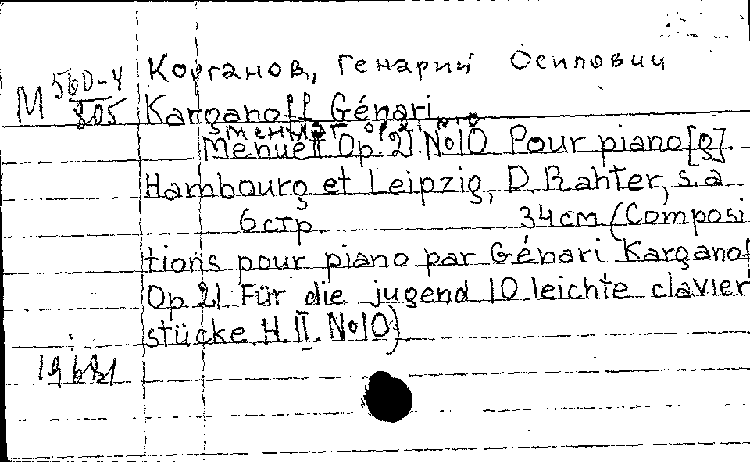 М 560-4
805
Корганов, Генарий Осипович
Karganoff Génari
менуэт op. 21
Menuett Op. 21 № 10 Pour piano [g].
Hambourg et Leipzig, D. Rahter, s.a
6 стр. 34 см (Composi
tions pour piano par Génari Karganof
Op. 21 Für die jugend 10 leichte clavier
stücke H. II. № 10)